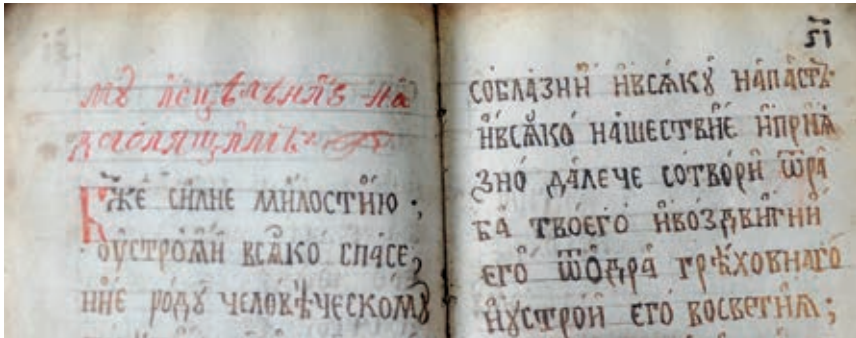 мꙋ исцѣлѣниѣ на
Бж҃е сил́не милостию ·;
оустроѧи всѧко спасе,
ние родꙋ человѣческомꙋ
г҃і
соблазни ивсѧкꙋ напасть
ивсѧко нашествие иприѧ
зно далече сотвори ѿра
ба твоего ивоздвигни
его ѿѻдра грѣховнаго
иꙋстрои его восветиѧ;